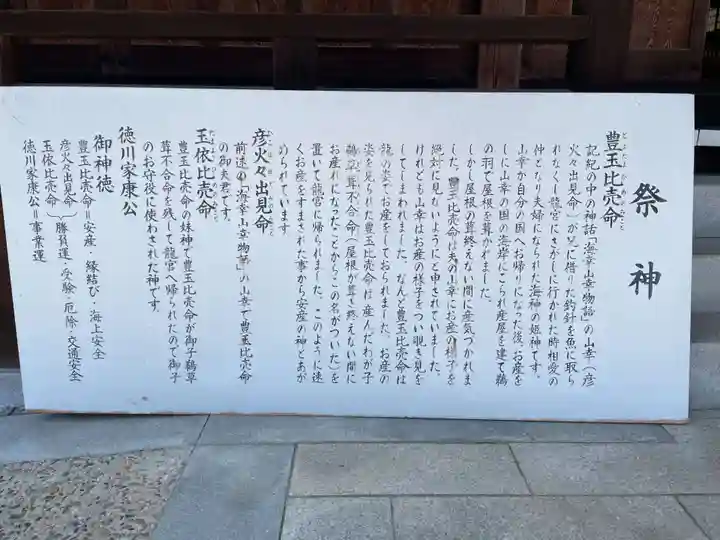 祭神
豊玉比売命
とよたまひめのみこと
記紀の中の神話「海幸山幸物語」の山幸（彦
火々出見命）が兄に借りた釣針を魚に取ら
れなくし龍宮にさがしに行かれた時相愛の
仲となり夫婦になられた海神の姫神です。
山幸が自分の国へお帰りになった後、お産を
しに山幸の国の海岸にこられ産屋を建て鵜
の羽で屋根を葺かれました。
しかし屋根の葺終えない間に産気づかれま
した。豊玉比売命は夫の山幸にお産の様子を
絶対に見ないようにと申されていました。
けれども山幸はお産の様子をつい覗き見を
してしまわれました。なんと豊玉比売命は
龍の姿でお産をしておられました。お産の
姿を見られた豊玉比売命は産んだわが子
鵜草葺不合命（屋根が葺き終えない間に
お産れになったことからこの名がついた）を
置いて龍宮に帰られました。このように速
くお産をすまされた事から安産の神とあが
められています
彦火々出見命
前述の「海幸山幸物語」の山幸で豊玉比売命
の御夫君です。
玉依比売命
豊玉比売命の妹神で豊玉比売命が御子鵜草
葺不合命を残して龍宮へ帰られたので御子
のお守役に使わされた神です。
徳川家康公
御神徳
豊玉比売命＝安産・縁結び・海上安全
彦火々出見命
玉依比売命
勝負運・受験・厄除・交通安全
徳川家康公＝事業運